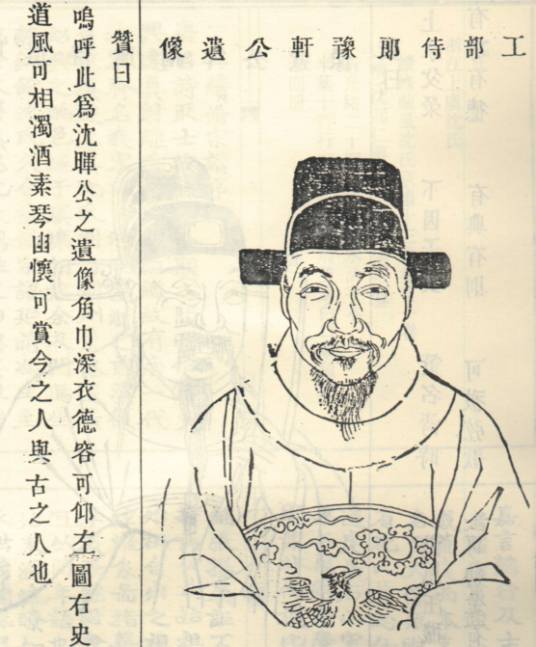 工部侍郎豫軒公遺像
贊曰
嗚呼此為沈暉公之遺像角巾深衣德容可仰左圖右史
道風可相濁酒素琴由懷可賞今之人與古之人也